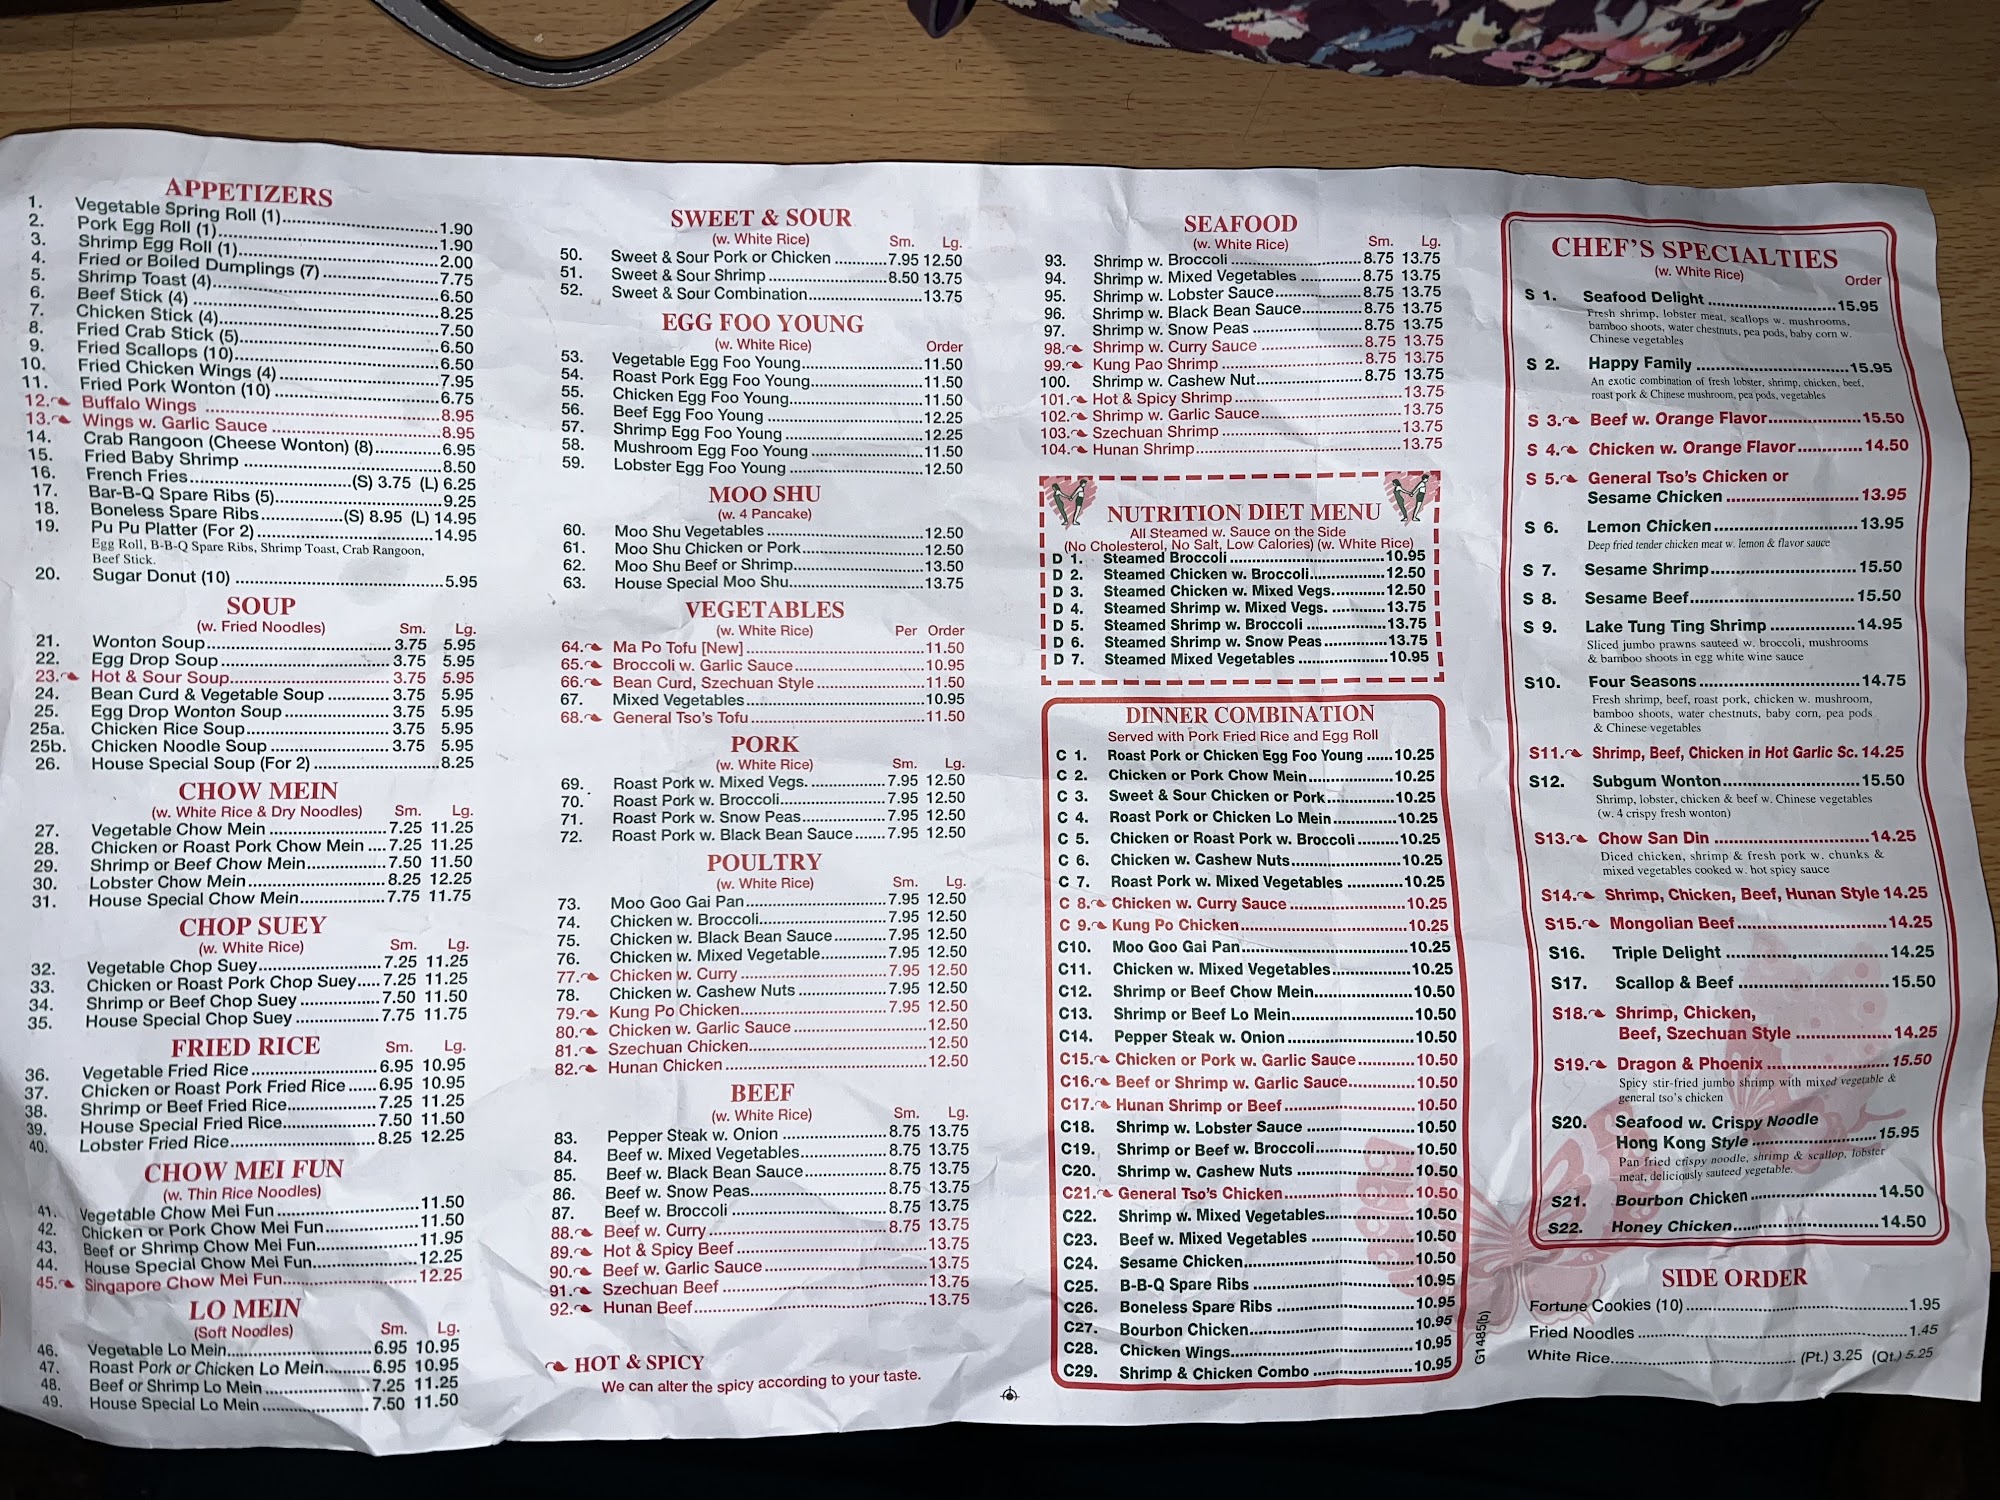 APPETIZERS
1. Vegetable Spring Roll (1) 1.90
2. Pork Egg Roll (1) 1.90
3. Shrimp Egg Roll (1) 2.00
4. Fried or Boiled Dumplings (7) 7.75
5. Shrimp Toast (4) 6.50
6. Beef Stick (4) 8.25
7. Chicken Stick (4) 7.50
8. Fried Crab Stick (5) 6.50
9. Fried Scallops (10) 6.50
10. Fried Chicken Wings (4) 7.95
11. Fried Pork Wonton (10) 6.75
12. Buffalo Wings 8.95
13. Wings w. Garlic Sauce 8.95
14. Crab Rangoon (Cheese Wonton) (8) 6.95
15. Fried Baby Shrimp 8.50
16. French Fries (S) 3.75 (L) 6.25
17. Bar-B-Q Spare Ribs (5) 9.25
18. Boneless Spare Ribs (S) 8.95 (L) 14.95
19. Pu Pu Platter (For 2) 14.95
Egg Roll, B-B-Q Spare Ribs, Shrimp Toast, Crab Rangoon,
Beef Stick.
20. Sugar Donut (10) 5.95
SOUP
(w. Fried Noodles) Sm. Lg.
21. Wonton Soup 3.75 5.95
22. Egg Drop Soup 3.75 5.95
23. Hot & Sour Soup 3.75 5.95
24. Bean Curd & Vegetable Soup 3.75 5.95
25. Egg Drop Wonton Soup 3.75 5.95
25a. Chicken Rice Soup 3.75 5.95
25b. Chicken Noodle Soup 3.75 5.95
26. House Special Soup (For 2) 8.25
CHOW MEIN
(w. White Rice & Dry Noodles) Sm. Lg.
27. Vegetable Chow Mein 7.25 11.25
28. Chicken or Roast Pork Chow Mein 7.25 11.25
29. Shrimp or Beef Chow Mein 7.50 11.50
30. Lobster Chow Mein 8.25 12.25
31. House Special Chow Mein 7.75 11.75
CHOP SUEY
(w. White Rice) Sm. Lg.
32. Vegetable Chop Suey 7.25 11.25
33. Chicken or Roast Pork Chop Suey 7.25 11.25
34. Shrimp or Beef Chop Suey 7.50 11.50
35. House Special Chop Suey 7.75 11.75
FRIED RICE Sm. Lg.
36. Vegetable Fried Rice 6.95 10.95
37. Chicken or Roast Pork Fried Rice 6.95 10.95
38. Shrimp or Beef Fried Rice 7.25 11.25
39. House Special Fried Rice 7.50 11.50
40. Lobster Fried Rice 8.25 12.25
CHOW MEI FUN
(w. Thin Rice Noodles)
41. Vegetable Chow Mei Fun 11.50
42. Chicken or Pork Chow Mei Fun 11.50
43. Beef or Shrimp Chow Mei Fun 11.95
44. House Special Chow Mei Fun 12.25
45. Singapore Chow Mei Fun 12.25
LO MEIN
(Soft Noodles) Sm. Lg.
46. Vegetable Lo Mein 6.95 10.95
47. Roast Pork or Chicken Lo Mein 6.95 10.95
48. Beef or Shrimp Lo Mein 7.25 11.25
49. House Special Lo Mein 7.50 11.50
SWEET & SOUR
(w. White Rice) Sm. Lg.
50. Sweet & Sour Pork or Chicken 7.95 12.50
51. Sweet & Sour Shrimp 8.50 13.75
52. Sweet & Sour Combination 13.75
EGG FOO YOUNG
(w. White Rice) Order
53. Vegetable Egg Foo Young 11.50
54. Roast Pork Egg Foo Young 11.50
55. Chicken Egg Foo Young 11.50
56. Beef Egg Foo Young 12.25
57. Shrimp Egg Foo Young 12.25
58. Mushroom Egg Foo Young 11.50
59. Lobster Egg Foo Young 12.50
MOO SHU
(w. 4 Pancake)
60. Moo Shu Vegetables 12.50
61. Moo Shu Chicken or Pork 12.50
62. Moo Shu Beef or Shrimp 13.50
63. House Special Moo Shu 13.75
VEGETABLES
(w. White Rice) Per Order
64. Ma Po Tofu [New] 11.50
65. Broccoli w. Garlic Sauce 10.95
66. Bean Curd, Szechuan Style 11.50
67. Mixed Vegetables 10.95
68. General Tso's Tofu 11.50
PORK
(w. White Rice) Sm. Lg.
69. Roast Pork w. Mixed Vegs. 7.95 12.50
70. Roast Pork w. Broccoli 7.95 12.50
71. Roast Pork w. Snow Peas 7.95 12.50
72. Roast Pork w. Black Bean Sauce 7.95 12.50
POULTRY
(w. White Rice) Sm. Lg.
73. Moo Goo Gai Pan 7.95 12.50
74. Chicken w. Broccoli 7.95 12.50
75. Chicken w. Black Bean Sauce 7.95 12.50
76. Chicken w. Mixed Vegetable 7.95 12.50
77. Chicken w. Curry 7.95 12.50
78. Chicken w. Cashew Nuts 7.95 12.50
79. Kung Po Chicken 7.95 12.50
80. Chicken w. Garlic Sauce 12.50
81. Szechuan Chicken 12.50
82. Hunan Chicken 12.50
BEEF
(w. White Rice) Sm. Lg.
83. Pepper Steak w. Onion 8.75 13.75
84. Beef w. Mixed Vegetables 8.75 13.75
85. Beef w. Black Bean Sauce 8.75 13.75
86. Beef w. Snow Peas 8.75 13.75
87. Beef w. Broccoli 8.75 13.75
88. Beef w. Curry 8.75 13.75
89. Hot & Spicy Beef 13.75
90. Beef w. Garlic Sauce 13.75
91. Szechuan Beef 13.75
92. Hunan Beef 13.75
HOT & SPICY
We can alter the spicy according to your taste.
SEAFOOD
(w. White Rice) Sm. Lg.
93. Shrimp w. Broccoli 8.75 13.75
94. Shrimp w. Mixed Vegetables 8.75 13.75
95. Shrimp w. Lobster Sauce 8.75 13.75
96. Shrimp w. Black Bean Sauce 8.75 13.75
97. Shrimp w. Snow Peas 8.75 13.75
98. Shrimp w. Curry Sauce 8.75 13.75
99. Kung Pao Shrimp 8.75 13.75
100. Shrimp w. Cashew Nut 8.75 13.75
101. Hot & Spicy Shrimp 13.75
102. Shrimp w. Garlic Sauce 13.75
103. Szechuan Shrimp 13.75
104. Hunan Shrimp 13.75
NUTRITION DIET MENU
All Steamed w. Sauce on the Side
(No Cholesterol, No Salt, Low Calories) (w. White Rice)
D 1. Steamed Broccoli 10.95
D 2. Steamed Chicken w. Broccoli 12.50
D 3. Steamed Chicken w. Mixed Vegs. 12.50
D 4. Steamed Shrimp w. Mixed Vegs. 13.75
D 5. Steamed Shrimp w. Broccoli 13.75
D 6. Steamed Shrimp w. Snow Peas 13.75
D 7. Steamed Mixed Vegetables 10.95
DINNER COMBINATION
Served with Pork Fried Rice and Egg Roll
C 1. Roast Pork or Chicken Egg Foo Young 10.25
C 2. Chicken or Pork Chow Mein 10.25
C 3. Sweet & Sour Chicken or Pork 10.25
C 4. Roast Pork or Chicken Lo Mein 10.25
C 5. Chicken or Roast Pork w. Broccoli 10.25
C 6. Chicken w. Cashew Nuts 10.25
C 7. Roast Pork w. Mixed Vegetables 10.25
C 8. Chicken w. Curry Sauce 10.25
C 9. Kung Po Chicken 10.25
C10. Moo Goo Gai Pan 10.25
C11. Chicken w. Mixed Vegetables 10.25
C12. Shrimp or Beef Chow Mein 10.50
C13. Shrimp or Beef Lo Mein 10.50
C14. Pepper Steak w. Onion 10.50
C15. Chicken or Pork w. Garlic Sauce 10.50
C16. Beef or Shrimp w. Garlic Sauce 10.50
C17. Hunan Shrimp or Beef 10.50
C18. Shrimp w. Lobster Sauce 10.50
C19. Shrimp or Beef w. Broccoli 10.50
C20. Shrimp w. Cashew Nuts 10.50
C21. General Tso's Chicken 10.50
C22. Shrimp w. Mixed Vegetables 10.50
C23. Beef w. Mixed Vegetables 10.50
C24. Sesame Chicken 10.50
C25. B-B-Q Spare Ribs 10.95
C26. Boneless Spare Ribs 10.95
C27. Bourbon Chicken 10.95
C28. Chicken Wings 10.95
C29. Shrimp & Chicken Combo 10.95
G1485(b)
CHEF'S SPECIALTIES
(w. White Rice) Order
S 1. Seafood Delight 15.95
Fresh shrimp, lobster meat, scallops w. mushrooms,
bamboo shoots, water chestnuts, pea pods, baby corn w.
Chinese vegetables
S 2. Happy Family 15.95
An exotic combination of fresh lobster, shrimp, chicken, beef,
roast pork & Chinese mushroom, pea pods, vegetables
S 3. Beef w. Orange Flavor 15.50
S 4. Chicken w. Orange Flavor 14.50
S 5. General Tso's Chicken or
Sesame Chicken 13.95
S 6. Lemon Chicken 13.95
Deep fried tender chicken meat w. lemon & flavor sauce
S 7. Sesame Shrimp 15.50
S 8. Sesame Beef 15.50
S 9. Lake Tung Ting Shrimp 14.95
Sliced jumbo prawns sauteed w. broccoli, mushrooms
& bamboo shoots in egg white wine sauce
S10. Four Seasons 14.75
Fresh shrimp, beef, roast pork, chicken w. mushroom,
bamboo shoots, water chestnuts, baby corn, pea pods
& Chinese vegetables
S11. Shrimp, Beef, Chicken in Hot Garlic Sc. 14.25
S12. Subgum Wonton 15.50
Shrimp, lobster, chicken & beef w. Chinese vegetables
(w. 4 crispy fresh wonton)
S13. Chow San Din 14.25
Diced chicken, shrimp & fresh pork w. chunks &
mixed vegetables cooked w. hot spicy sauce
S14. Shrimp, Chicken, Beef, Hunan Style 14.25
S15. Mongolian Beef 14.25
S16. Triple Delight 14.25
S17. Scallop & Beef 15.50
S18. Shrimp, Chicken,
Beef, Szechuan Style 14.25
S19. Dragon & Phoenix 15.50
Spicy stir-fried jumbo shrimp with mixed vegetable &
general tso's chicken
S20. Seafood w. Crispy Noodle
Hong Kong Style 15.95
Pan fried crispy noodle, shrimp & scallop, lobster
meat, deliciously sauteed vegetable.
S21. Bourbon Chicken 14.50
S22. Honey Chicken 14.50
SIDE ORDER
Fortune Cookies (10) 1.95
Fried Noodles 1.45
White Rice (Pt.) 3.25 (Qt.) 5.25